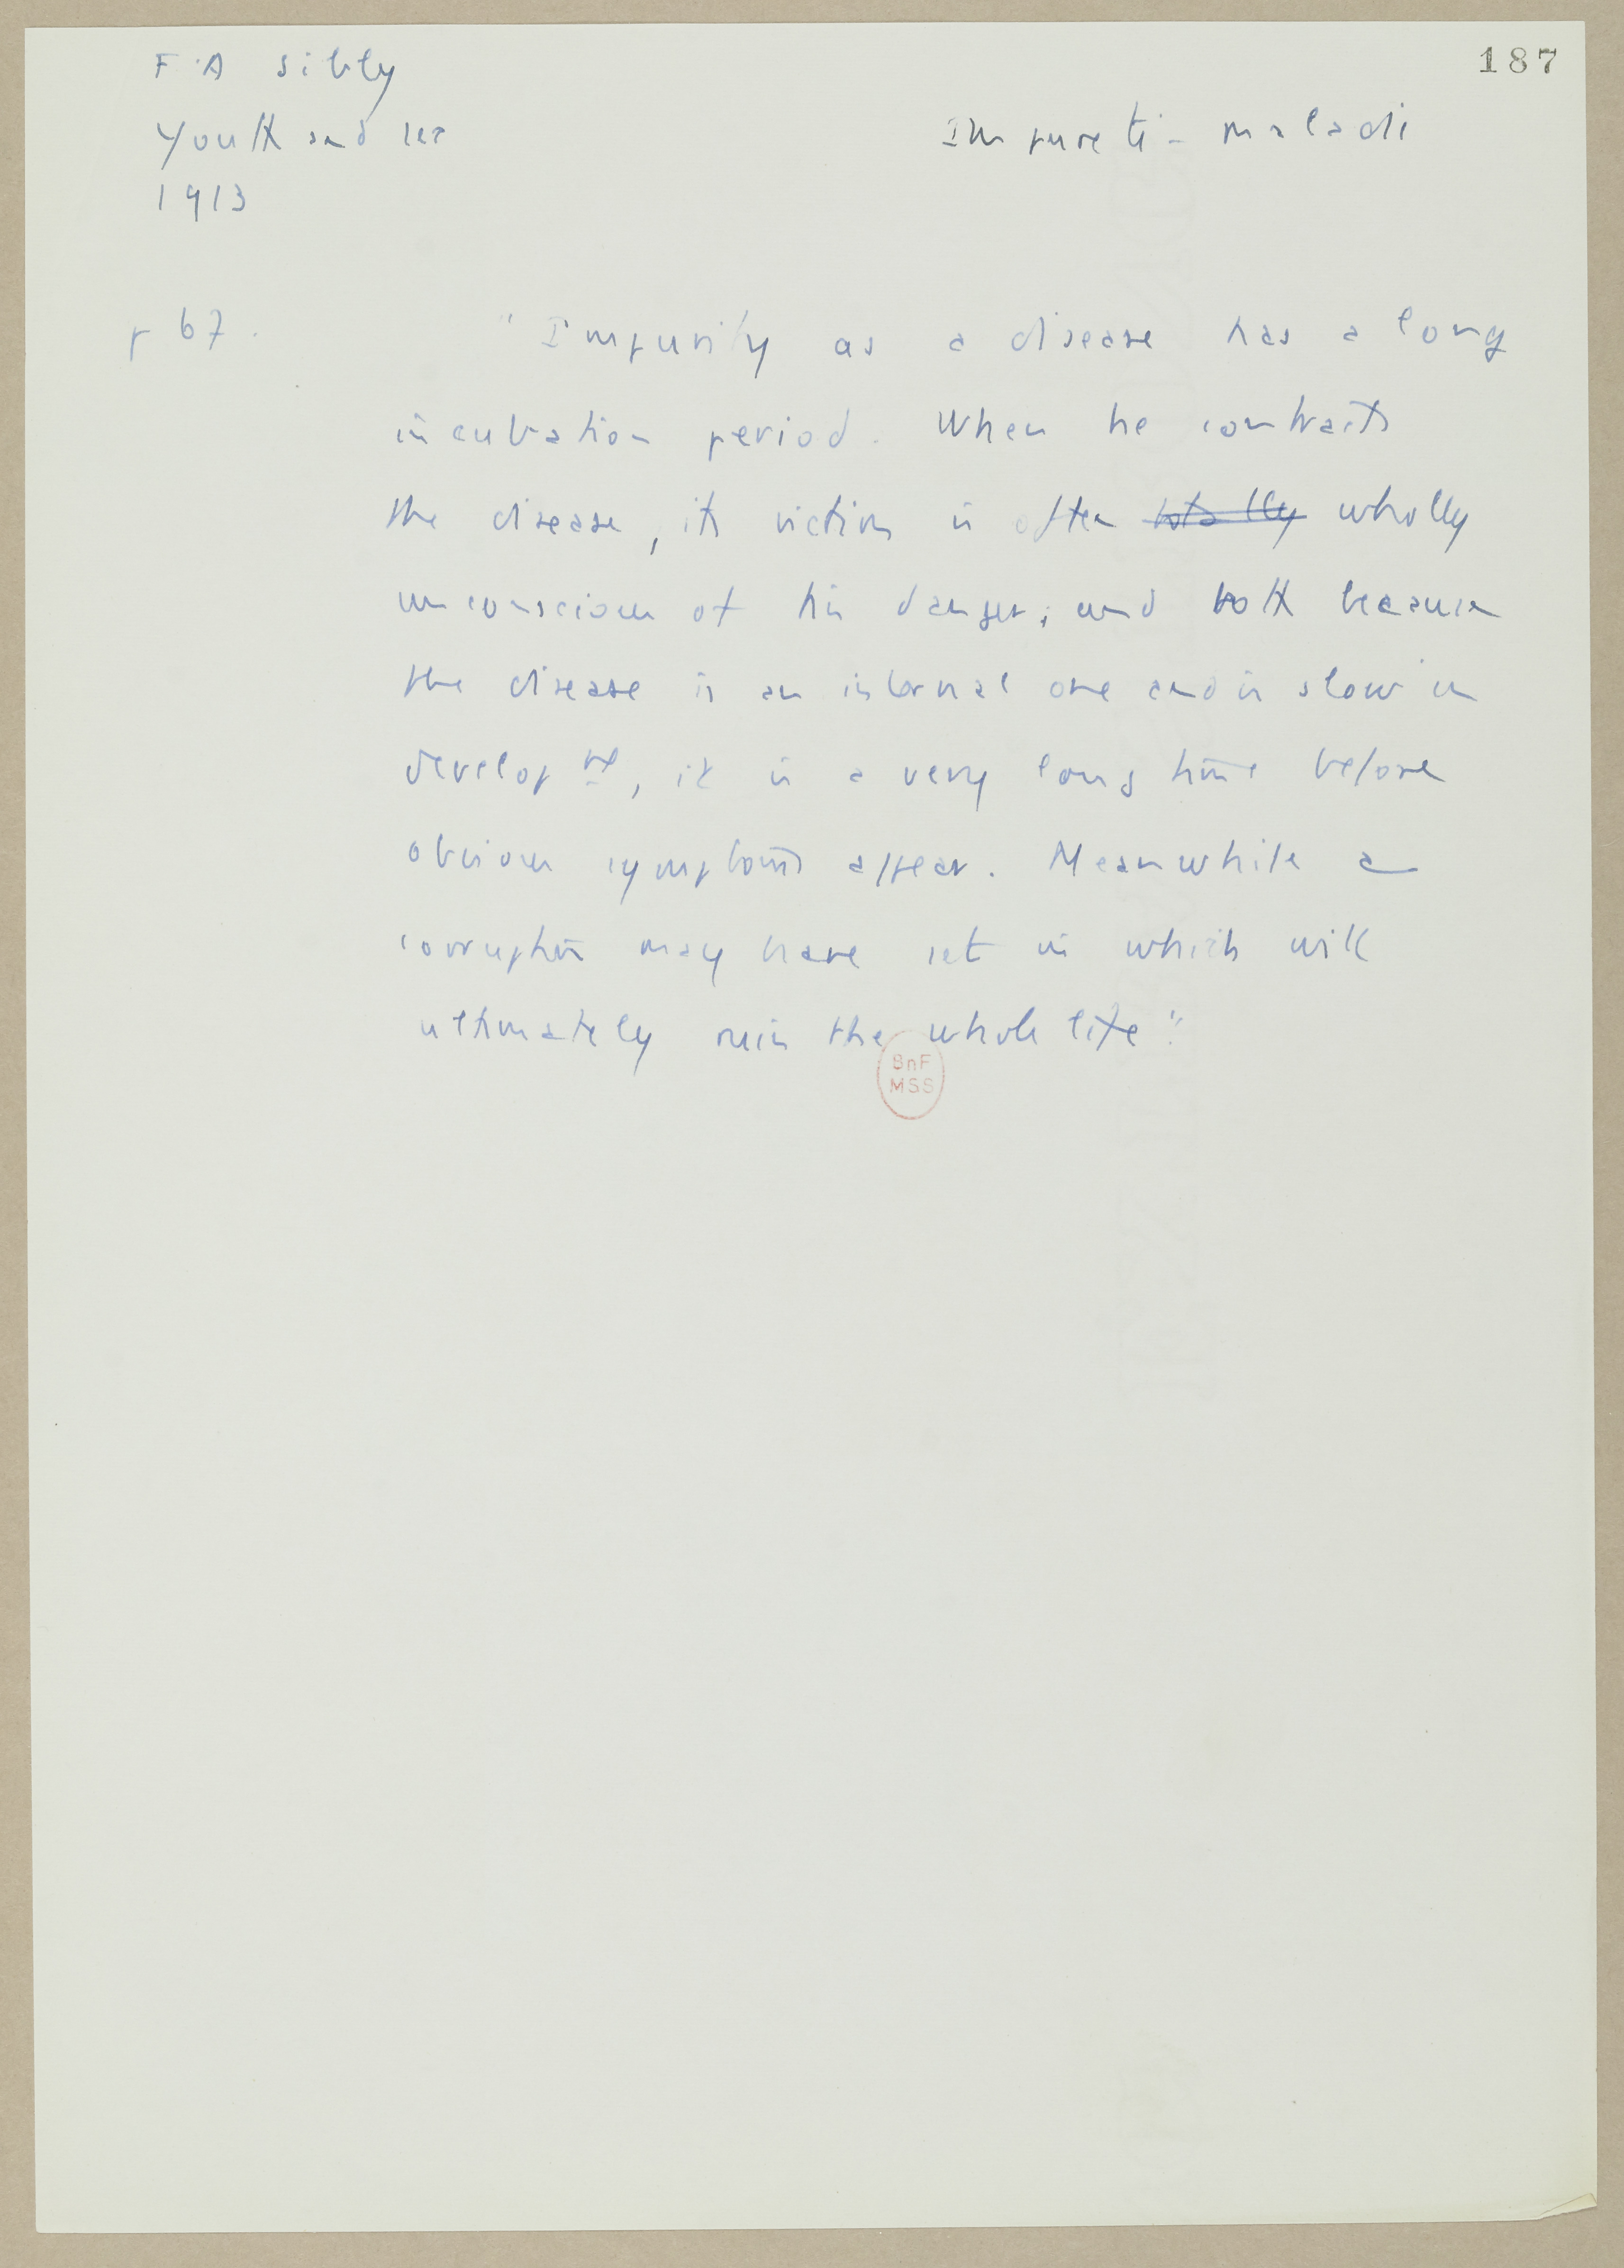 187
F.A Sibly
Youth and sex
1913
Impureté - maladie
p 67.
"Impurity as a disease has a long
incubation period. When he contracts
the disease, its victim is often totally wholly
unconscious of his danger; and both because
the disease is an internal one and is slow in
develop nt, it is a very long time before
obvious symptoms appear. Meanwhile a
corruption may have set in which will
ultimately ruin the whole life".
BnF
MSS